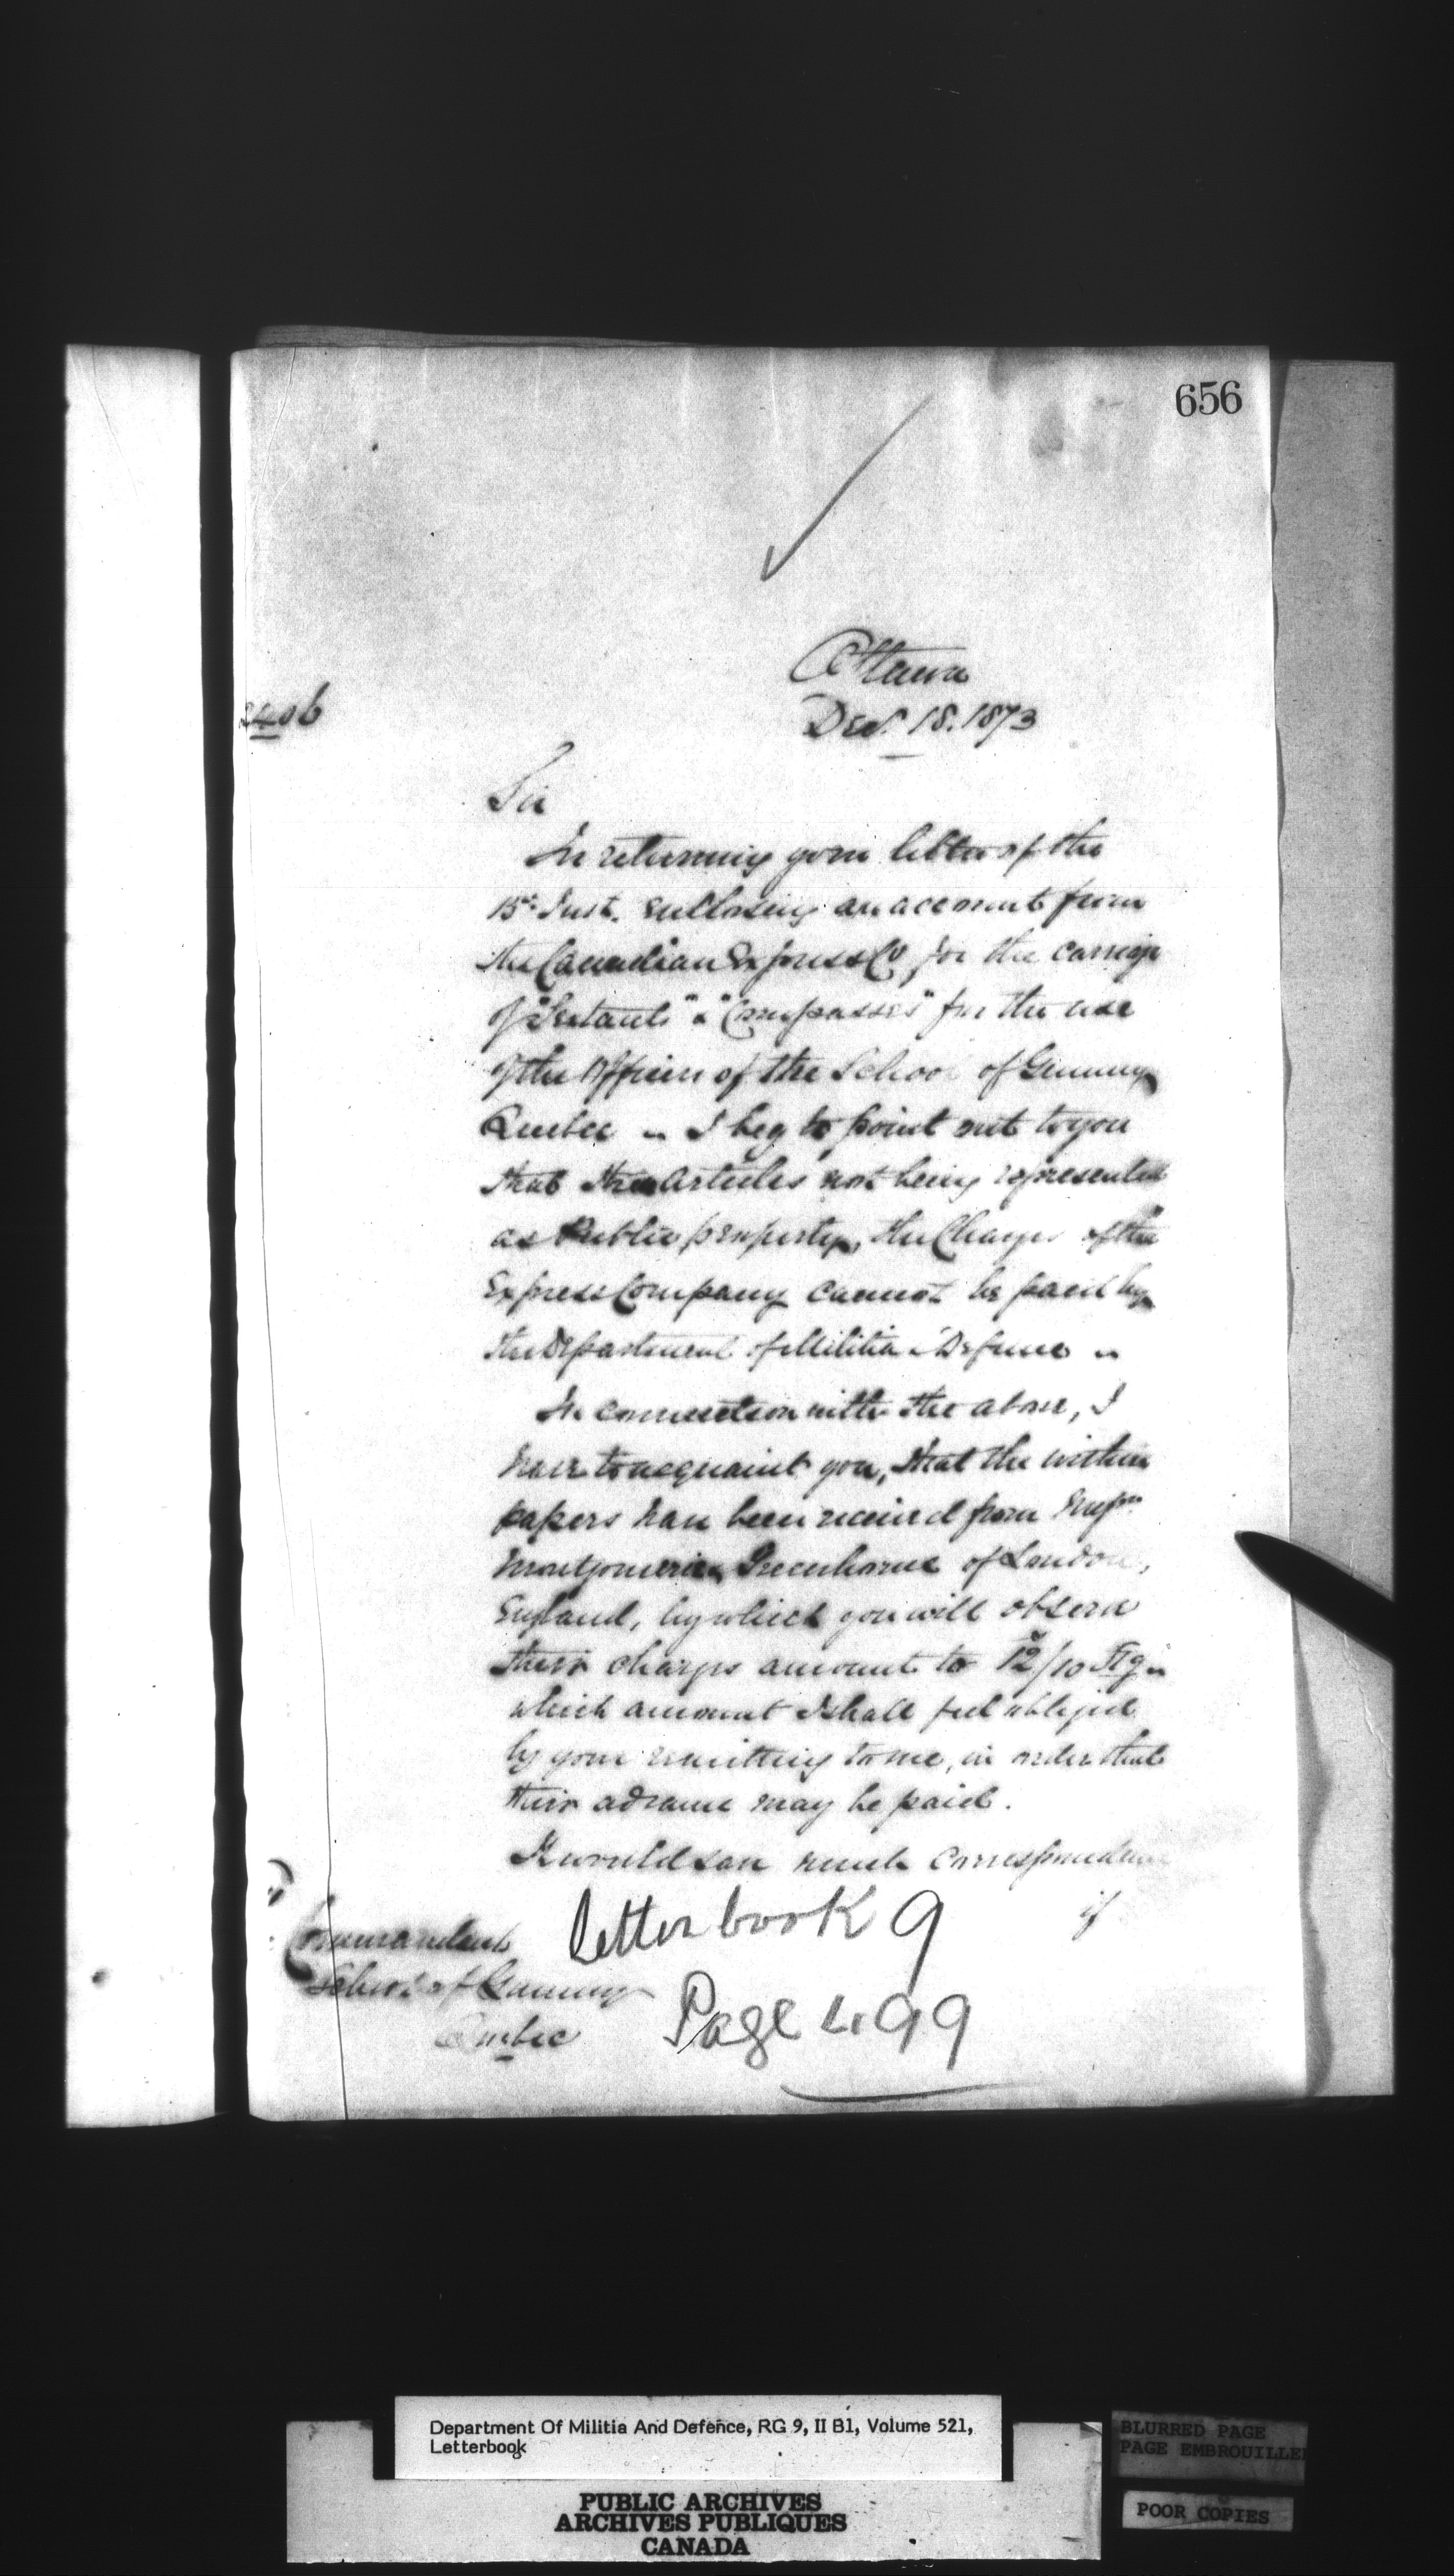 656
Ottawa
Decr. 18. 1873
Sir
In returning your letter of the
15th Inst. enclosing an account from
the Canadian Express Co for the carriage
of "Sextants" & "Compasses" for the use
of the Officers of the School of Gunnery
Quebec – I beg to point out to you
that the articles not being represented
as Public property, the Charges of the
Express Company cannot be paid by
the Department of Militia & Defence –
In connection with the above, I
have to acquaint you, that the within
papers have been received from Messrs
Montgomerie & Greenhorne of London,
England, by which you will observe
their charges amount to 12/10 Stg –
which amount I shall feel obliged
by your remitting to me, in order that
their advance may be paid.
It would save much correspondence
if
Commandant
School of Gunnery
Quebec
Letterbook 9
Page 499
Department Of Militia And Defence, RG 9, II B1, Volume 521,
Letterbook
PUBLIC ARCHIVES
ARCHIVES PUBLIQUES
CANADA
BLURRED PAGE
PAGE EMBROUILLEE
POOR COPIES